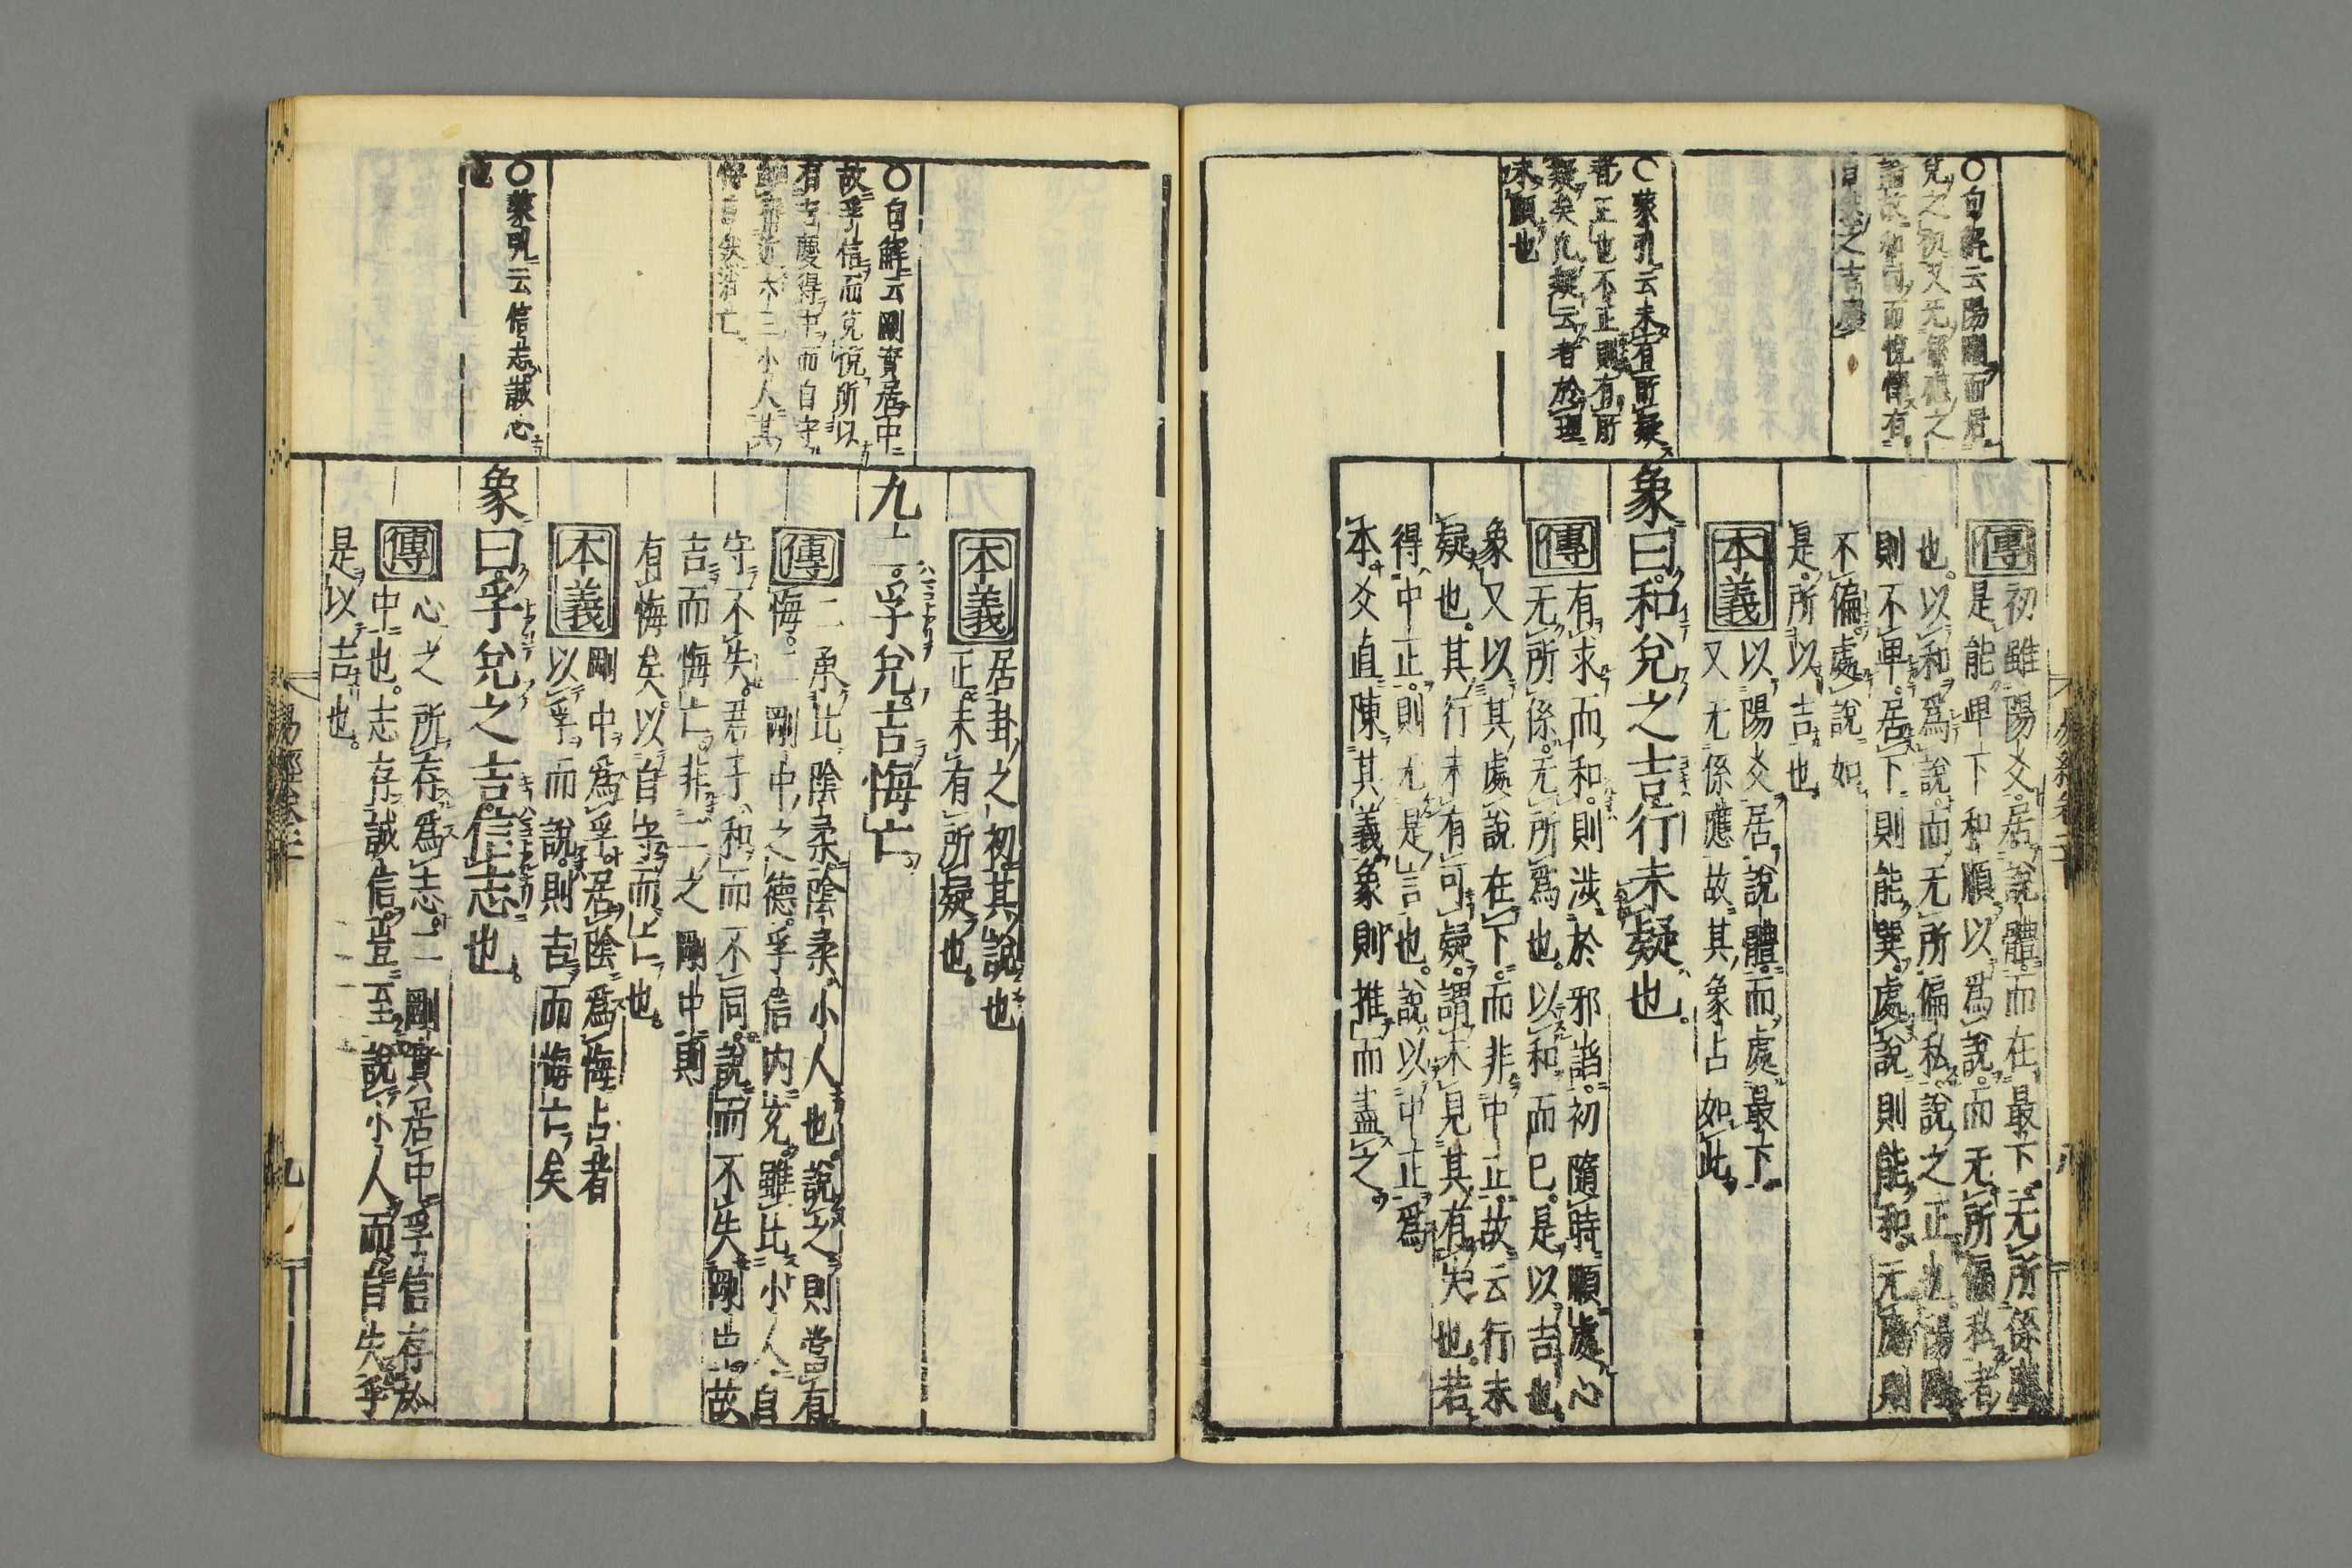 〇句解云陽剛而居
兌之初又无係應之
自然之吉慶
〇蒙引云未有所疑
者正也不正則有所
疑矣凡疑云者於理
未順也
傳
初雖陽爻居說體而在最下无所係應
是能卑下和順以爲說而无所偏私者
也。以和爲說而无所偏私說之正也陽剛
則不卑居下則能巽處說則能和无應則
不偏處說如
是所以吉也
本義
以陽爻居說體而處最下
又无係應故其象占如此
象曰和兌之吉行未疑也。
傳
有求而和。則涉於邪諂。初隨時順處心
无所係。无所爲也。以和而已。是以吉也
象又以其處說在下。而非中正。故云行未
疑也。其行未有可疑。謂未見其有失也。若
得中正。則无是言也。說以中正爲
本。爻直陳其義象則推而盡之。
〇句解云剛實居中
故孚信而兌悅所以
有吉慶得中而自守
六三小人其
〇蒙引云信志誠心
也
本義
居卦之初其說也
正未有所疑也。
九二。孚兌。吉悔亡。
傳
二承比陰柔陰柔小人也。說之則當有
悔。二剛中之德。孚信内充。雖比小人自
守不失。君子和而不同。說而不失剛中故
吉而悔亡。非二之剛中則
有悔矣。以自守而亡也。
本義
剛中爲孚居陰爲悔占者
以孚而說則吉而悔亡矣
象曰孚兌之吉。信志也。
傳
心之所存爲志。二剛實居中孚信存於
中也。志存誠信。豈至說小人而自失乎
是以吉也。
易經卷三
九